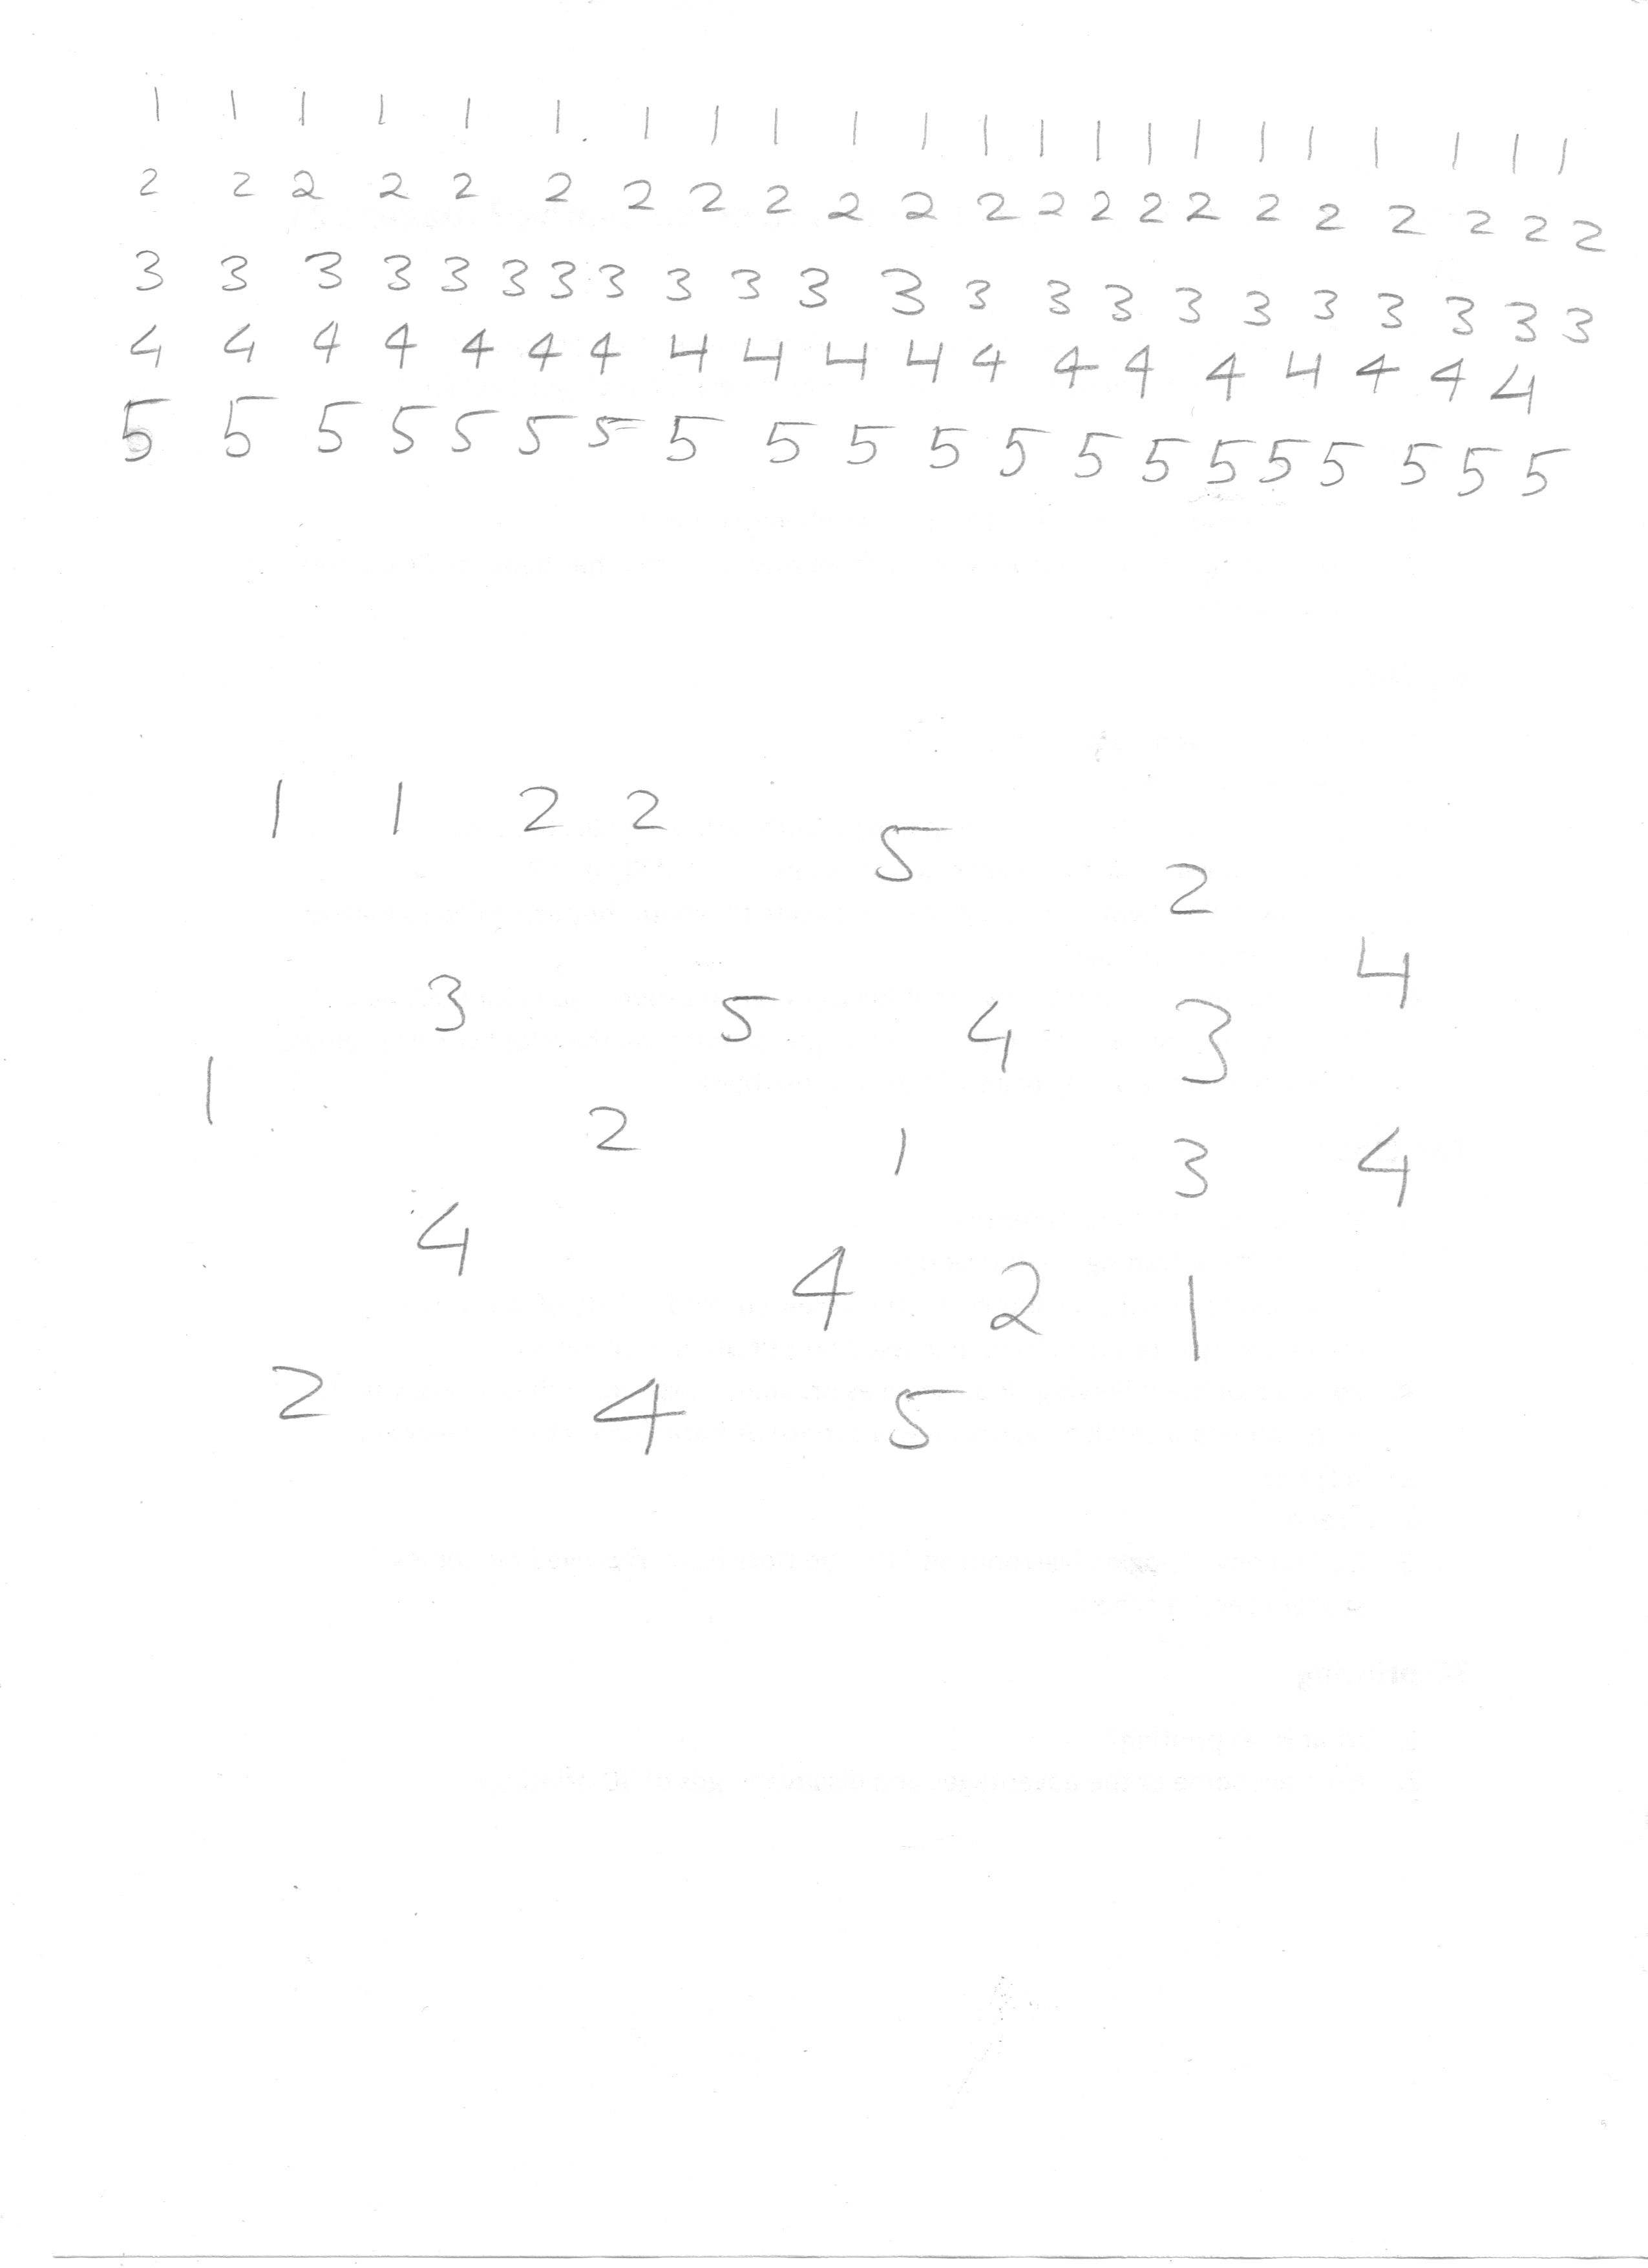 1 1 1 1 1 1 1 1 1 1 1 1 1 1 1 1 1 1 1 1 1 1
2 2 2 2 2 2 2 2 2 2 2 2 2 2 2 2 2 2 2 2 2 2
3 3 3 3 3 3 3 3 3 3 3 3 3 3 3 3 3 3 3 3 3 3
4 4 4 4 4 4 4 4 4 4 4 4 4 4 4 4 4 4 4
5 5 5 5 5 5 5 5 5 5 5 5 5 5 5 5 5 5 5 5
1 1 2 2 5 2
3 5 4 3 4
1 2 1 3 4
4 4 2 1
2 4 5